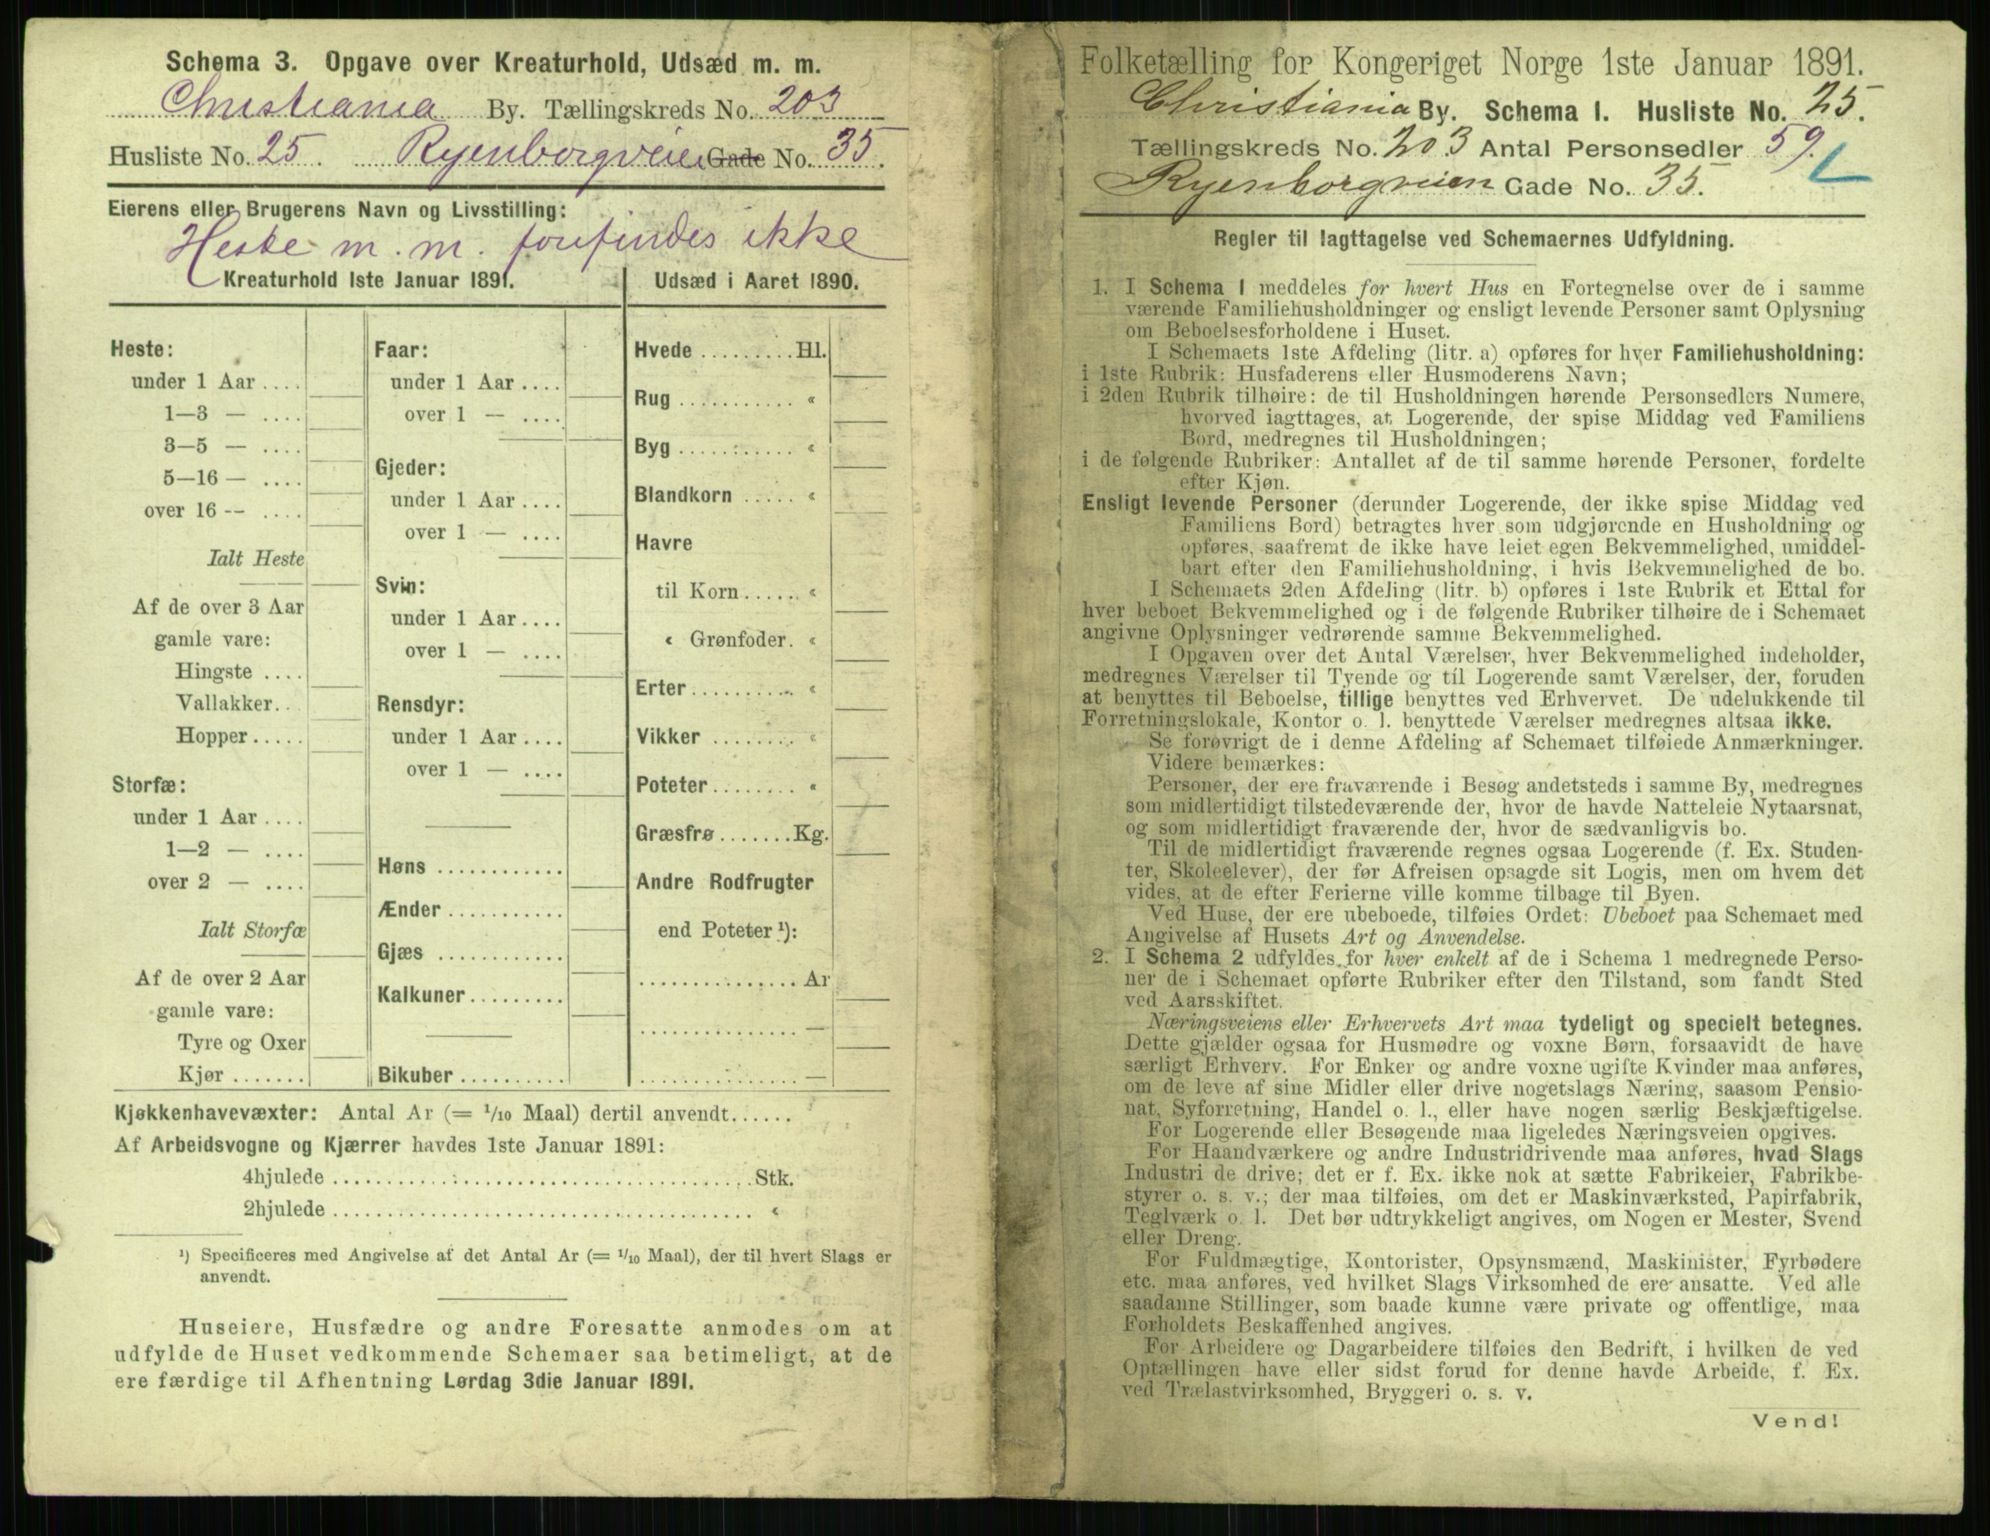 Schema 3. Opgave over Kreaturhold, Udsæd m. m.
Christiania By. Tællingskreds No. 203
Husliste No. 25. Ryenborgveien Gade No. 35.
Eierens eller Brugerens Navn og Livsstilling:
Heste m. m. forefindes ikke
Kreaturhold 1ste Januar 1891.
Heste:
under 1 Aar ....
1—3 — ....
3—5 — ....
5—16 — ....
over 16 -- ....
Ialt Heste
Af de over 3 Aar
gamle vare:
Hingste ....
Vallakker..
Hopper.....
Storfæ:
under 1 Aar ....
1—2 — ....
over 2 — ....
Ialt Storfæ
Af de over 2 Aar
gamle vare:
Tyre og Oxer
Kjør .......
Faar:
under 1 Aar ....
over 1 — ....
Gjeder:
under 1 Aar ....
over 1 — ....
Svin:
under 1 Aar ....
over 1 — ....
Rensdyr:
under 1 Aar ....
over 1 — ....
Høns ............
Ænder ...........
Gjæs ............
Kalkuner.........
Bikuber ..........
Udsæd i Aaret 1890.
Hvede .........Hl.
Rug ........... «
Byg ........... «
Blandkorn ..... «
Havre
til Korn...... «
« Grønfoder. «
Erter.......... «
Vikker ........ «
Poteter........ «
Græsfrø .......Kg.
Andre Rodfrugter
end Poteter ¹):
............... Ar
............... —
............... —
Kjøkkenhavevæxter: Antal Ar (= 1/10 Maal) dertil anvendt......
Af Arbeidsvogne og Kjærrer havdes 1ste Januar 1891:
4hjulede ........................................Stk.
2hjulede ........................................ «
¹) Specificeres med Angivelse af det Antal Ar (= 1/10 Maal), der til hvert Slags er
anvendt.
Huseiere, Husfædre og andre Foresatte anmodes om at
udfylde de Huset vedkommende Schemaer saa betimeligt, at de
ere færdige til Afhentning Lørdag 3die Januar 1891.
Folketælling for Kongeriget Norge 1ste Januar 1891.
Christiania By. Schema 1. Husliste No. 25.
Tællingskreds No. 203 Antal Personsedler 59.
Ryenborgveien Gade No. 35.
Regler til Iagttagelse ved Schemaernes Udfyldning.
1. I Schema 1 meddeles for hvert Hus en Fortegnelse over de i samme
værende Familiehusholdninger og ensligt levende Personer samt Oplysning
om Beboelsesforholdene i Huset.
I Schemaets 1ste Afdeling (litr. a) opføres for hver Familiehusholdning:
i 1ste Rubrik: Husfaderens eller Husmoderens Navn;
i 2den Rubrik tilhøire: de til Husholdningen hørende Personsedlers Numere,
hvorved iagttages, at Logerende, der spise Middag ved Familiens
Bord, medregnes til Husholdningen;
i de følgende Rubriker: Antallet af de til samme hørende Personer, fordelte
efter Kjøn.
Ensligt levende Personer (derunder Logerende, der ikke spise Middag ved
Familiens Bord) betragtes hver som udgjørende en Husholdning og
opføres, saafremt de ikke have leiet egen Bekvemmelighed, umiddel-
bart efter den Familiehusholdning, i hvis Bekvemmelighed de bo.
I Schemaets 2den Afdeling (litr. b) opføres i 1ste Rubrik et Ettal for
hver beboet Bekvemmelighed og i de følgende Rubriker tilhøire de i Schemaet
angivne Oplysninger vedrørende samme Bekvemmelighed.
I Opgaven over det Antal Værelser, hver Bekvemmelighed indeholder,
medregnes Værelser til Tyende og til Logerende samt Værelser, der, foruden
at benyttes til Beboelse, tillige benyttes ved Erhvervet. De udelukkende til
Forretningslokale, Kontor o. l. benyttede Værelser medregnes altsaa ikke.
Se forøvrigt de i denne Afdeling af Schemaet tilføiede Anmærkninger.
Videre bemærkes:
Personer, der ere fraværende i Besøg andetsteds i samme By, medregnes
som midlertidigt tilstedeværende der, hvor de havde Natteleie Nytaarsnat,
og som midlertidigt fraværende der, hvor de sædvanligvis bo.
Til de midlertidigt fraværende regnes ogsaa Logerende (f. Ex. Studen-
ter, Skoleelever), der før Afreisen opsagde sit Logis, men om hvem det
vides, at de efter Ferierne ville komme tilbage til Byen.
Ved Huse, der ere ubeboede, tilføies Ordet: Ubeboet paa Schemaet med
Angivelse af Husets Art og Anvendelse.
2. I Schema 2 udfyldes for hver enkelt af de i Schema 1 medregnede Perso-
ner de i Schemaet opførte Rubriker efter den Tilstand, som fandt Sted
ved Aarsskiftet.
Næringsveiens eller Erhvervets Art maa tydeligt og specielt betegnes.
Dette gjælder ogsaa for Husmødre og voxne Børn, forsaavidt de have
særligt Erhverv. For Enker og andre voxne ugifte Kvinder maa anføres,
om de leve af sine Midler eller drive nogetslags Næring, saasom Pensio-
nat, Syforretning, Handel o. l., eller have nogen særlig Beskjæftigelse.
For Logerende eller Besøgende maa ligeledes Næringsveien opgives.
For Haandværkere og andre Industridrivende maa anføres, hvad Slags
Industri de drive; det er f. Ex. ikke nok at sætte Fabrikeier, Fabrikbe-
styrer o. s. v.; der maa tilføies, om det er Maskinværksted, Papirfabrik,
Teglværk o. l. Det bør udtrykkeligt angives, om Nogen er Mester, Svend
eller Dreng.
For Fuldmægtige, Kontorister, Opsynsmænd, Maskinister, Fyrbødere
etc. maa anføres, ved hvilket Slags Virksomhed de ere ansatte. Ved alle
saadanne Stillinger, som baade kunne være private og offentlige, maa
Forholdets Beskaffenhed angives.
For Arbeidere og Dagarbeidere tilføies den Bedrift, i hvilken de ved
Optællingen have eller sidst forud for denne havde Arbeide, f. Ex.
ved Trælastvirksomhed, Bryggeri o. s. v.
Vend!